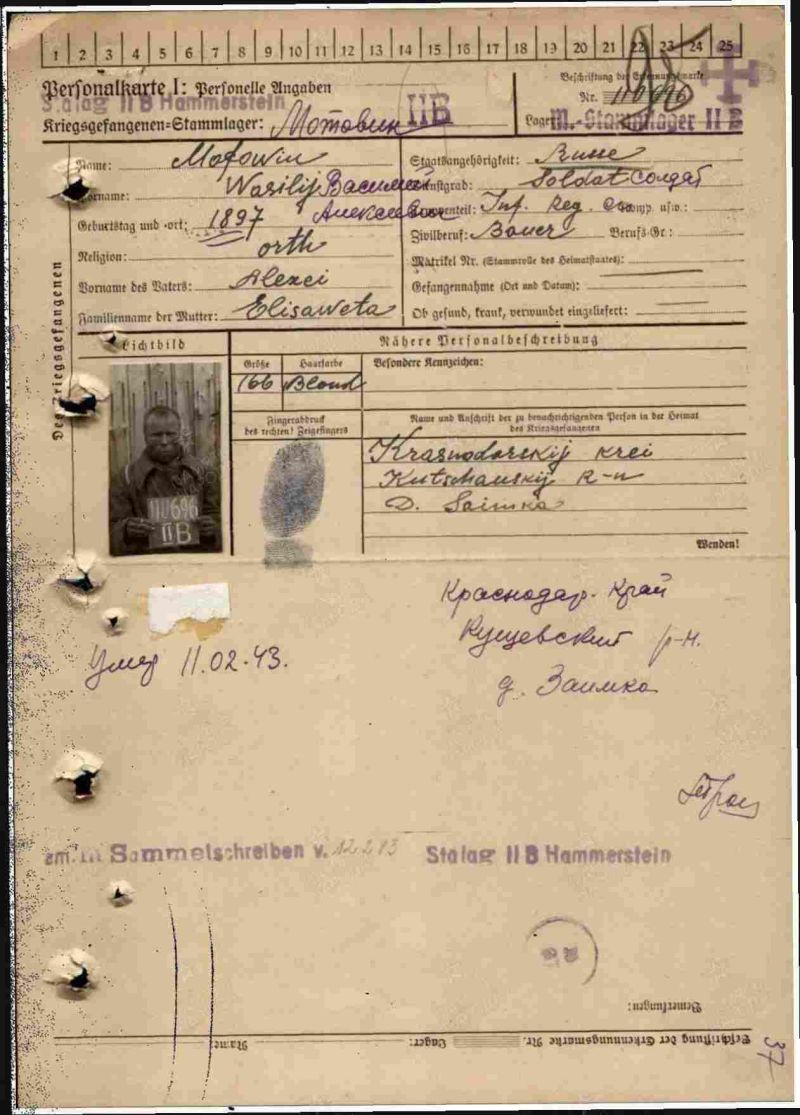 1 2 3 4 5 6 7 8 9 10 11 12 13 14 15 16 17 18 19 20 21 22 23 24 25
Personalkarte I: Personelle Angaben
Stalag II B Hammerstein
Kriegsgefangenen-Stammlager: Мотовин II B
Beschriftung der Erkennungsmarke
Nr.
Lager: M.-Stammlager II B
Des Kriegsgefangenen
Name: Motowin
Vorname: Wasilij Василий
Алексеевич
Geburtstag und -ort: 1897
Religion: orth
Vorname des Vaters: Alexei
Familienname der Mutter: Elisaweta
Staatsangehörigkeit: Russe
Dienstgrad: Soldat солдат
Truppenteil: Inf. Reg. Komp. usw.:
Zivilberuf: Bauer Berufs-Gr.:
Matrikel Nr. (Stammrolle des Heimatstaates):
Gefangennahme (Ort und Datum):
Ob gesund, krank, verwundet eingeliefert:
Lichtbild
Nähere Personalbeschreibung
Größe Haarfarbe Besondere Kennzeichen:
166 Blond
Fingerabdruck
des rechten! Zeigefingers
Name und Anschrift der zu benachrichtigenden Person in der Heimat
des Kriegsgefangenen
Krasnodorskij krei
Kutschauskij R-n
D. Saimka
110696
II B
Wenden!
Краснодар. край
Кущевский р-н.
д. Заимка
Умер 11.02.43.
Sammelschreiben v.
Stalag II B Hammerstein
Bemerkungen:
Beschriftung der Erkennungsmarke Nr. Lager: Name:
37